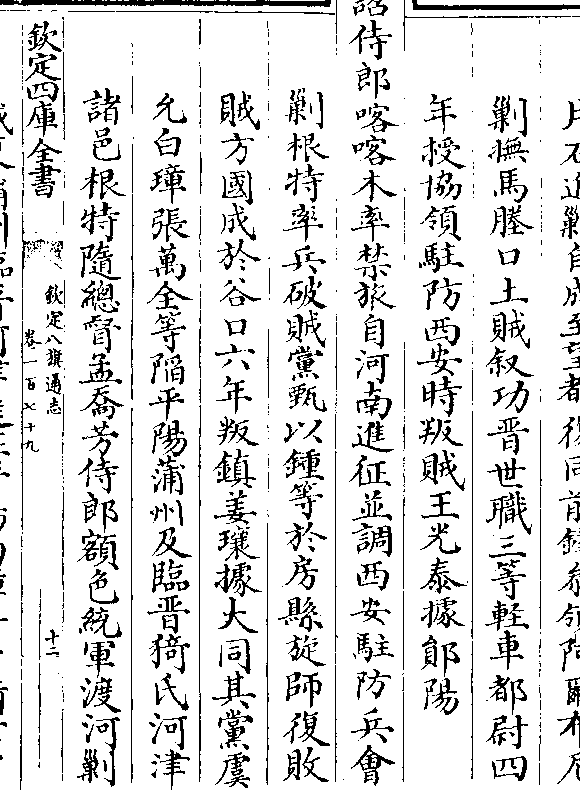 剿撫馬塍口土賊叙功晋世職三等輕車都尉四
年授協領駐防西安時叛賊王光泰據鄖陽
詔侍郎喀喀木率禁旅自河南進征並調西安駐防兵會
剿根特率兵破賊黨甄以鍾等於房縣旋師復敗
賊方國成於谷口六年叛鎮姜瓖據大同其黨虞
允白璋張萬全等陷平陽蒲州及臨晋猗氏河津
諸邑根特隨總督孟喬芳侍郎額色統軍渡河剿
欽定四庫全書
欽定八旗通志
卷一百七十九
十二